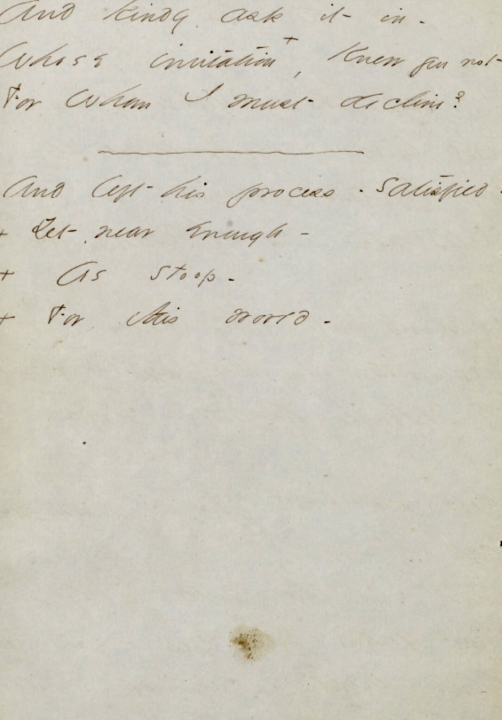 And kindly ask it in -
Whose invitation +, knew you not
For Whom I must decline?
And left his process - satisfied -
+ Yet near Enough -
+ As stoop -
+ For this world -